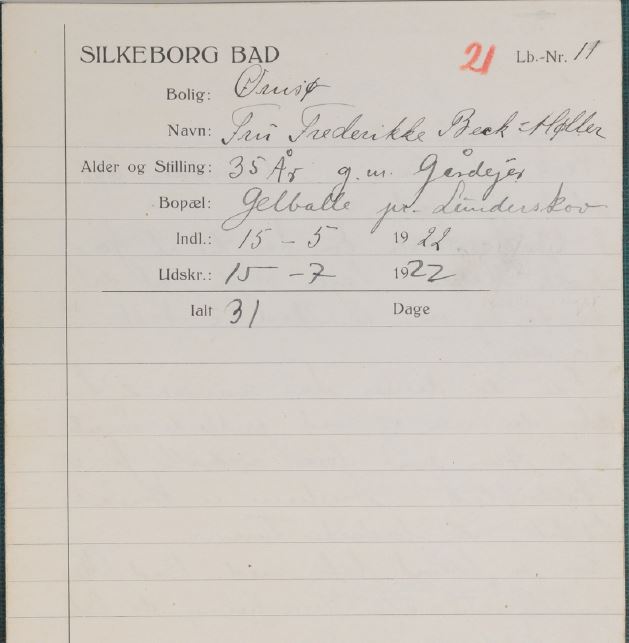 SILKEBORG BAD 21 Lb.-Nr. 11
Bolig: Ørnsø
Navn: Fru Frederikke Beck-Møller
Alder og Stilling: 35 År g. m. Gårdejer
Bopæl: Gelballe pr. Lunderskov
Indl.: 15 - 5 1922
Udskr.: 15 - 7 1922
Ialt 31 Dage